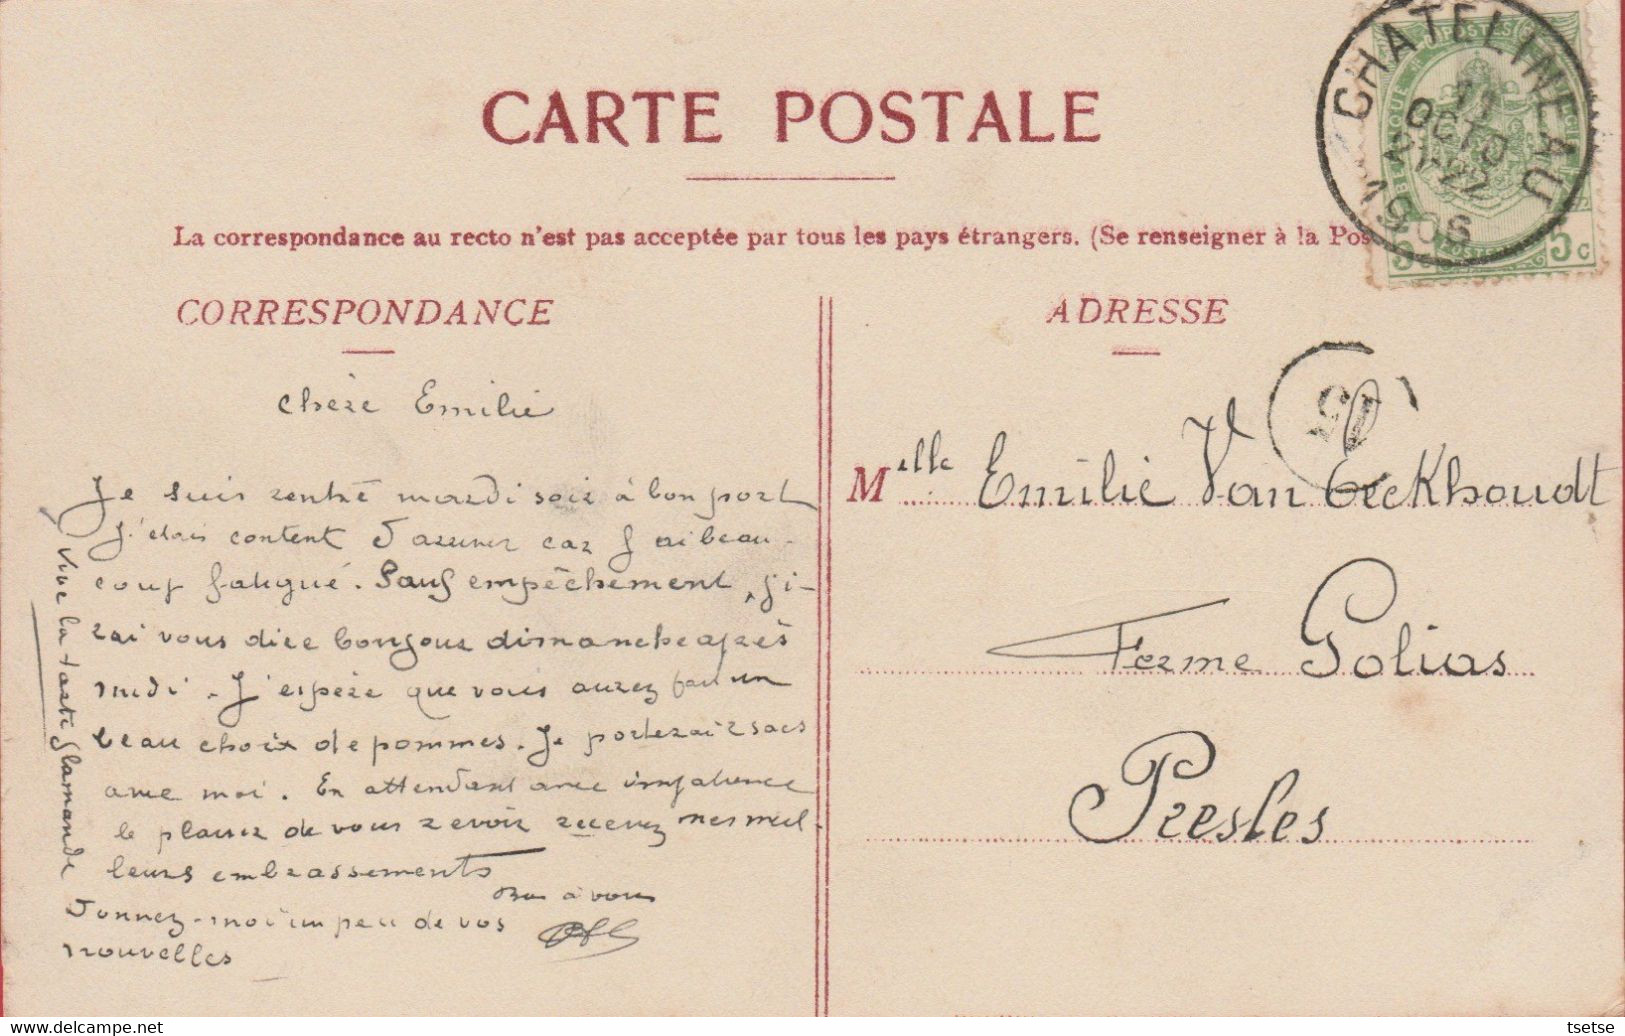 CARTE POSTALE
La correspondance au recto n'est pas acceptée par tous les pays étrangers. (Se renseigner à la Pos
CHATELINEAU
11
OCT
1906
POSTES
5 c
CORRESPONDANCE
chère Emilie
Je suis rentré mardi soir à bon port
J'étais content d'arriver car J'ai beau-
coup fatigué. Sauf empêchement, j'i-
rai vous dire bonjour dimanche après
midi. J'espère que vous aurez fait un
beau choix de pommes. Je porterai 2 sacs
avec moi. En attendant avec impatience
le plaisir de vous revoir recevez mes meil-
leurs embrassements
Bien à vous
Donnez-moi un peu de vos
nouvelles
Vive la tarte flamande
ADRESSE
Melle Emilie Van Eeckhoudt
Ferme Golias
Presles
tsetse